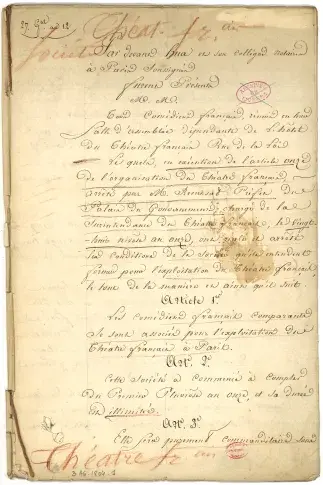 27 Gal an 12
Théât. fr.
Société
Par devant Hua et son collègue notaires
à Paris Soussignés
furent Présents
M. M.
Tous Comédiens français réunis en leur
Salle d'assemblée dépendante de l'hôtel
du Théâtre français Rue de la Loi
Lesquels, en exécution de l'article onze
de l'organisation du Théâtre français
arrêté par M. Remusat Préfet du
Palais du Gouvernement, chargé de la
Surintendance du Théâtre français, le vingt
huit nivose an onze, ont réglé et arrêté
les conditions de la société qu'ils entendent
former pour l'exploitation du Théâtre français
le tout de la manière et ainsi qu'il suit.
Article 1er
Les Comédiens français comparants
Se sont associés pour l'exploitation du
Théâtre français à Paris.
Art. 2.
Cette Société a commencé à compter
du Premier Pluviose an onze et sa durée
est illimitée.
Art. 3e
Elle sera purement commanditaire sans
Théâtre fr.